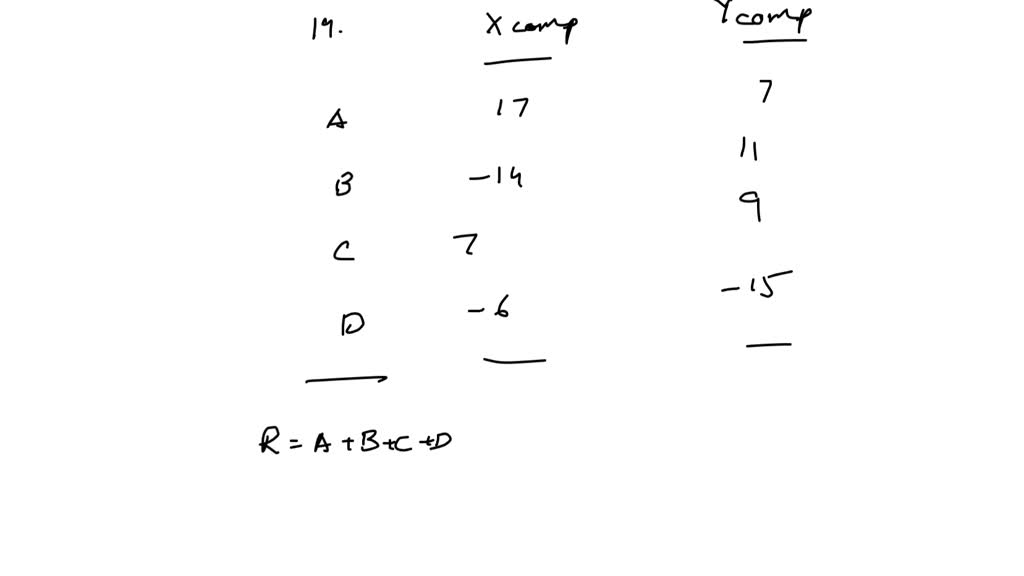 19. X comp Y comp
A 17 7
B -14 11
C 7 9
D -6 -15
R = A + B + C + D